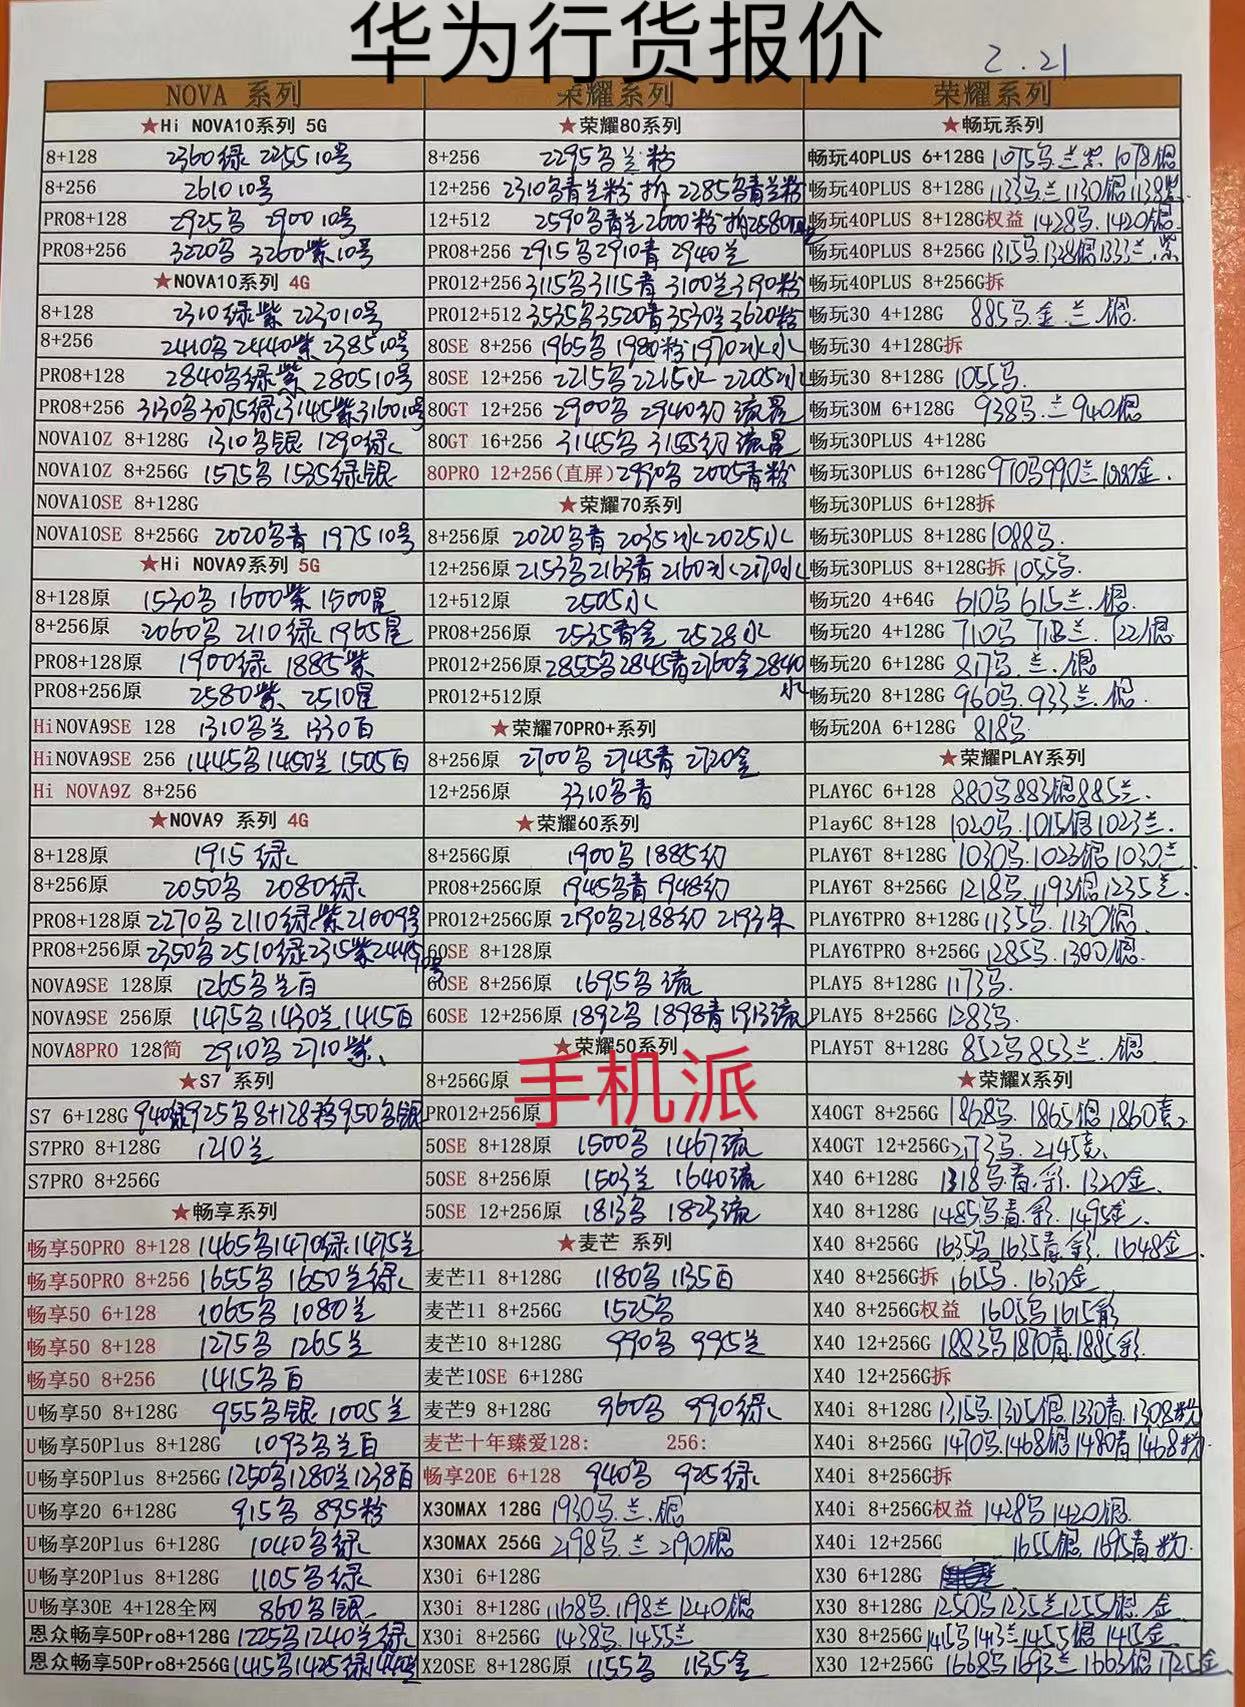 华为行货报价
2.21
NOVA 系列
★Hi NOVA10系列 5G
8+128 2360绿 2255 10号
8+256 2610 10号
PRO8+128 2925乌 2900 10号
PRO8+256 3220乌 3260紫 10号
★NOVA10系列 4G
8+128 2310绿紫 2230 10号
8+256 2410乌 2440紫 2385 10号
PRO8+128 2840乌绿紫 2805 10号
PRO8+256 3130乌 3075绿 3145紫 3160 10号
NOVA10Z 8+128G 1310乌银 1290绿
NOVA10Z 8+256G 1575乌 1535绿银
NOVA10SE 8+128G
NOVA10SE 8+256G 2020乌青 1975 10号
★Hi NOVA9系列 5G
8+128原 1530乌 1600紫 1500星
8+256原 2060乌 2110绿 1965星
PRO8+128原 1900绿 1885紫
PRO8+256原 2580紫 2510星
HiNOVA9SE 128 1310乌兰 1330百
HiNOVA9SE 256 1445乌 1450兰 1505百
Hi NOVA9Z 8+256
★NOVA9 系列 4G
8+128原 1915绿
8+256原 2050乌 2080绿
PRO8+128原 2270乌 2110绿紫 2100 9号
PRO8+256原 2350乌 2510绿 2315紫 2445 10号
NOVA9SE 128原 1265乌兰百
NOVA9SE 256原 1475乌 1430兰 1415百
NOVA8PRO 128简 2910乌 2710紫
★S7 系列
S7 6+128G 940绿 925乌 8+128移 950乌银
S7PRO 8+128G 1210兰
S7PRO 8+256G
★畅享系列
畅享50PRO 8+128 1465乌 1470绿 1475兰
畅享50PRO 8+256 1655乌 1650兰绿
畅享50 6+128 1065乌 1080兰
畅享50 8+128 1275乌 1265兰
畅享50 8+256 1415乌百
U畅享50 8+128G 955乌银 1005兰
U畅享50Plus 8+128G 1093乌兰百
U畅享50Plus 8+256G 1250乌 1280兰 1238百
U畅享20 6+128G 915乌 895粉
U畅享20Plus 6+128G 1040乌绿
U畅享20Plus 8+128G 1105乌绿
U畅享30E 4+128全网 860乌银
恩众畅享50Pro8+128G 1225乌 1240兰绿
恩众畅享50Pro8+256G 1415乌 1425绿 1440兰
荣耀系列
★荣耀80系列
8+256 2295乌兰粉
12+256 2310乌青兰粉 拆 2285乌青兰粉
12+512 2590乌青兰 2600粉 拆2580
PRO8+256 2915乌 2910青 2940兰
PRO12+256 3115乌 3115青 3100兰 3190粉
PRO12+512 3535乌 3520青 3530兰 3620粉
80SE 8+256 1965乌 1980粉 1970冰水
80SE 12+256 2215乌 2215水 2205冰
80GT 12+256 2900乌 2940幻 流星
80GT 16+256 3145乌 3155幻 流星
80PRO 12+256(直屏) 2990乌 2005青粉
★荣耀70系列
8+256原 2020乌青 2035冰 2025水
12+256原 2153乌 2163青 2160水 2170冰
12+512原 2505水
PRO8+256原 2535青金 2528水
PRO12+256原 2855乌 2845青 2760金 2840水
PRO12+512原
★荣耀70PRO+系列
8+256原 2700乌 2745青 2720金
12+256原 3310乌青
★荣耀60系列
8+256G原 1900乌 1885幻
PRO8+256G原 1945乌青 1948幻
PRO12+256G原 2190乌 2188幻 2193朱
60SE 8+128原
60SE 8+256原 1695乌流
60SE 12+256原 1892乌 1898青 1913流
★荣耀50系列
8+256G原
手机派
PRO12+256原
50SE 8+128原 1500乌 1467流
50SE 8+256原 1503兰 1640流
50SE 12+256原 1813乌 1823流
★麦芒 系列
麦芒11 8+128G 1180乌 1135百
麦芒11 8+256G 1525乌
麦芒10 8+128G 990乌 995兰
麦芒10SE 6+128G
麦芒9 8+128G 960乌 990绿
麦芒十年臻爱128: 256:
畅享20E 6+128 940乌 925绿
X30MAX 128G 1930乌.兰.银
X30MAX 256G 2198乌.兰 2190银
X30i 6+128G
X30i 8+128G 1168乌.1198兰 1240银
X30i 8+256G 1438乌.1455兰
X20SE 8+128G原 1155乌 1135金
荣耀系列
★畅玩系列
畅玩40PLUS 6+128G 1075乌.兰.紫 1078银
畅玩40PLUS 8+128G 1133乌.兰 1130银 1138紫
畅玩40PLUS 8+128G权益 1428乌.1420银
畅玩40PLUS 8+256G 1315乌.1328银 1333兰.紫
畅玩40PLUS 8+256G拆
畅玩30 4+128G 885乌.金.兰.银
畅玩30 4+128G拆
畅玩30 8+128G 1055乌.
畅玩30M 6+128G 938乌.兰 940银
畅玩30PLUS 4+128G
畅玩30PLUS 6+128G 970乌 990兰 1080金.
畅玩30PLUS 6+128拆
畅玩30PLUS 8+128G 1088乌.
畅玩30PLUS 8+128G拆 1055乌.
畅玩20 4+64G 610乌 615兰.银.
畅玩20 4+128G 710乌 713兰.722银
畅玩20 6+128G 817乌.兰.银
畅玩20 8+128G 960乌.933兰.银.
畅玩20A 6+128G 818乌
★荣耀PLAY系列
PLAY6C 6+128 880乌 883银 885兰.
Play6C 8+128 1020乌.1015银 1023兰.
PLAY6T 8+128G 1030乌.1023银 1030兰
PLAY6T 8+256G 1218乌.1193银 1235兰.
PLAY6TPRO 8+128G 1135乌.1130银.
PLAY6TPRO 8+256G 1285乌.1300银.
PLAY5 8+128G 1173乌.
PLAY5 8+256G 1283乌.
PLAY5T 8+128G 852乌 853兰.银
★荣耀X系列
X40GT 8+256G 1868乌.1865银 1860竞
X40GT 12+256G 2173乌.2145竞
X40 6+128G 1318乌青.彩.1320金
X40 8+128G 1485乌青.彩.1495金.
X40 8+256G 1635乌 1635青.彩.1648金.
X40 8+256G拆 1615乌.1630金
X40 8+256G权益 1605乌 1615彩
X40 12+256G 1883乌 1870青.1885彩.
X40 12+256G拆
X40i 8+128G 1315乌.1305银.1330青.1308粉
X40i 8+256G 1470乌.1468银 1480青 1468粉.
X40i 8+256G拆
X40i 8+256G权益 1428乌 1420银.
X40i 12+256G 1655银.1695青.粉.
X30 6+128G
X30 8+128G 1250乌 1235兰 1255银.金.
X30 8+256G 1415乌 1413兰 1455银 1415金
X30 12+256G 1668乌 1693兰 1663银 1725金